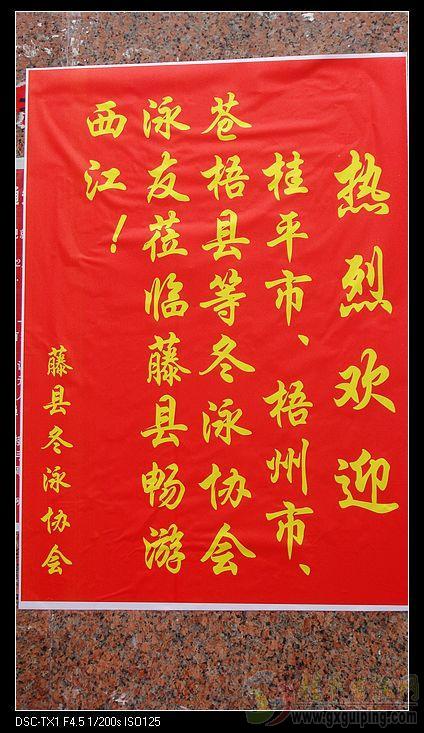 热烈欢迎
桂平市、梧州市、
苍梧县等冬泳协会
泳友莅临藤县畅游
西江！
藤县冬泳协会
DSC-TX1 F4.5 1/200s ISO125
www.gxguiping.com